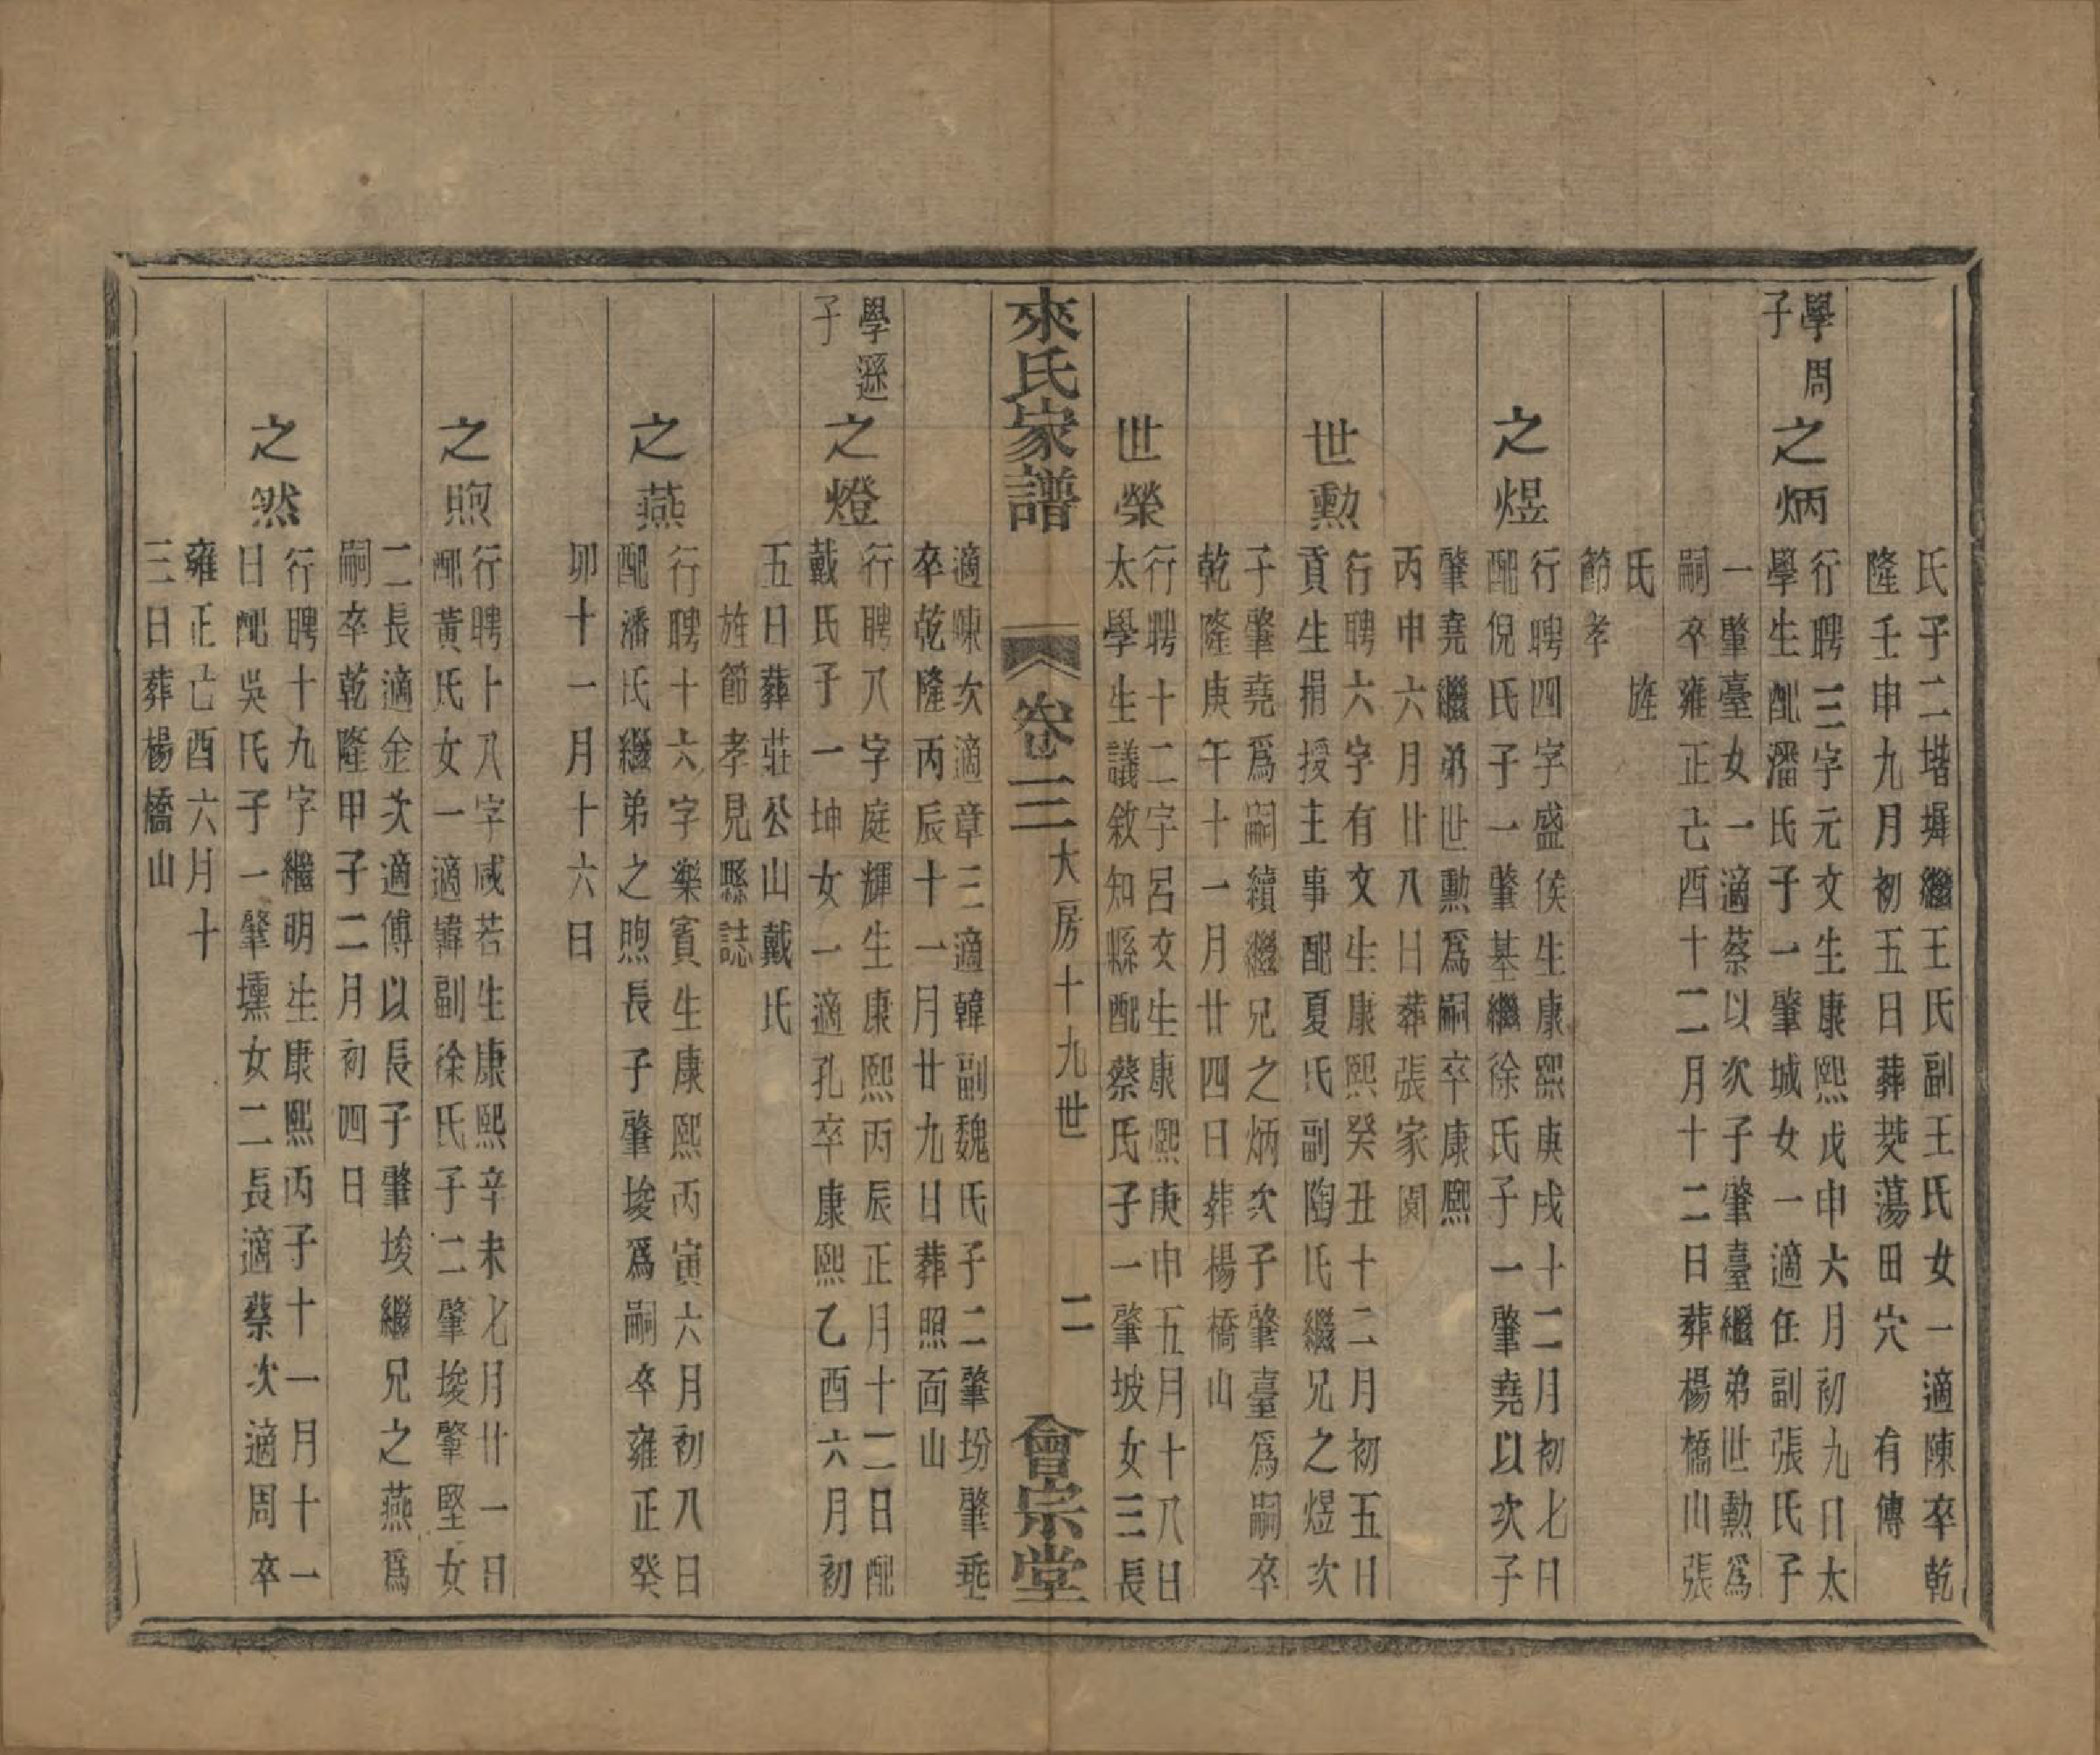 氏子二堦墀繼王氏副王氏女一適陳卒乾
隆壬申九月初五日葬茭蕩田穴　有傳
學周子
之炳
行聘三字元文生康熙戊申六月初九日太
學生配潘氏子一肇城女一適任副張氏子
一肇臺女一適蔡以次子肇臺繼弟世勳爲
嗣卒雍正己酉十二月十二日葬楊橋山張
氏　旌
節孝
之煜
行聘四字盛侯生康熙庚戌十二月初七日
配倪氏子一肇基繼徐氏子一肇堯以次子
肇堯繼弟世勳爲嗣卒康熙
丙申六月廿八日葬張家園
世勳
行聘六字有文生康熙癸丑十二月初五日
貢生捐授主事配夏氏副陶氏繼兄之煜次
子肇堯爲嗣續繼兄之炳次子肇臺爲嗣卒
乾隆庚午十一月廿四日葬楊橋山
世榮
行聘十二字呂文生康熙庚申五月十八日
太學生議敘知縣配蔡氏子一肇坡女三長
來氏家譜　卷三　大房十九世　二　會宗堂
適陳次適章三適韓副魏氏子二肇坋肇埀
卒乾隆丙辰十一月廿九日葬照面山
學遜子
之燈
行聘八字庭輝生康熙丙辰正月十二日配
戴氏子一坤女一適孔卒康熙乙酉六月初
五日葬莊公山戴氏
旌節孝見縣誌
之燕
行聘十六字樂賓生康熙丙寅六月初八日
配潘氏繼弟之煦長子肇埈爲嗣卒雍正癸
卯十一月十六日
之煦
行聘十八字咸若生康熙辛未七月廿一日
配黃氏女一適韓副徐氏子二肇埈肇堅女
二長適金次適傅以長子肇埈繼兄之燕爲
嗣卒乾隆甲子二月初四日
之然
行聘十九字繼明生康熙丙子十一月十一
日配吳氏子一肇壎女二長適蔡次適周卒
雍正己酉六月十
三日葬楊橋山